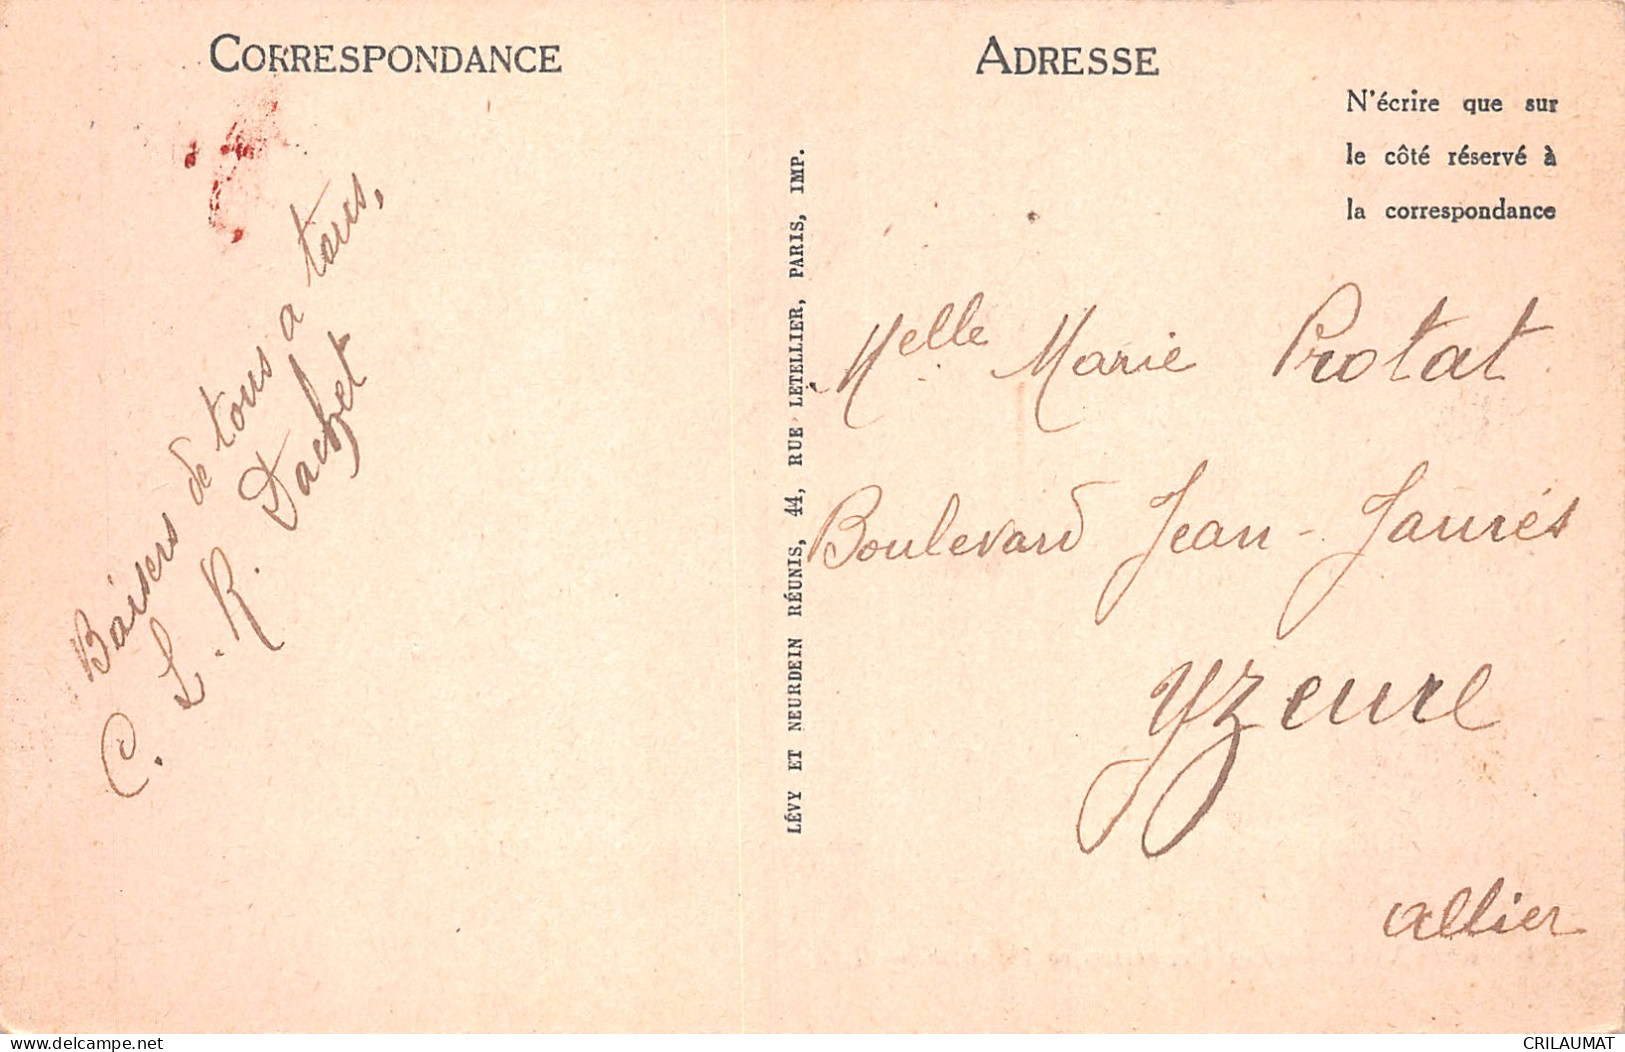 CORRESPONDANCE
Baisers de tous a tous,
C. L. R. Dachet
LÉVY ET NEURDEIN RÉUNIS, 44, RUE LETELLIER, PARIS, IMP.
ADRESSE
N'écrire que sur
le côté réservé à
la correspondance
Melle Marie Protat
Boulevard Jean-Jaurés
Yzeure
Allier
www.delcampe.net
CRILAUMAT